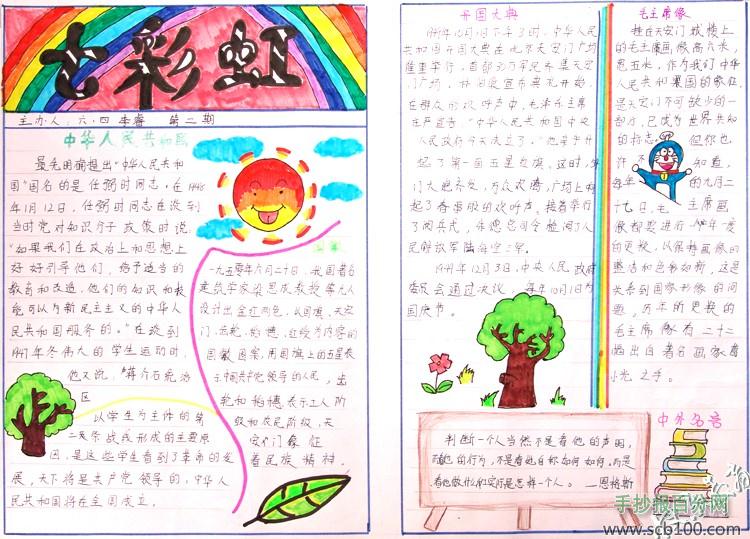 七彩虹
主办人：六.四 李睿 第二期
中华人民共和国
最先明确提出"中华人民共和
国"国名的是任弼时同志，在1948
年1月12日，任弼时同志在谈到
当时党对知识分子政策时说：
"如果我们在政治上和思想上
好好引导他们，给予适当的
教育和改造，他们的知识和技
能可以为新民主主义的中华人
民共和国服务的。"在谈到
1947年冬伟大的学生运动时，
他又说，"蒋介石统治
区
以学生为主体的第
二条战线形成的主要原
因，是这些学生看到了革命的发
展，天下将是共产党领导的，中华人
民共和国将在全国成立。
一九五零年六月二十日，我国著名
建筑学家梁思成教授等九人
设计出金红两色，以国旗、天安
门、齿轮、稻穗、红绶为内容的
国徽图案，用国旗上的五星表
示中国共产党领导的人民，齿
轮和稻穗表示工人阶
级和农民阶级，天
安门象征
着民族精神。
开国大典
1949年10月1日下午3时，中华人民
共和国开国大典在北京天安门广场
隆重举行，首都30万军民齐集天安
门广场，林伯渠宣布典礼开始，
在群众的欢呼声中，毛泽东主席
庄严宣告："中华人民共和国中央
人民政府今天成立了。"他亲手升
起了第一面五星红旗，这时，
门大炮齐发，万众欢腾，广场上响
起了春雷般的欢呼声。接着举行
了阅兵式，朱德总司令检阅了人
民解放军陆海空三军。
1949年12月3日，中央人民政府
委员会通过决议，每年10月1日为
国庆节。
毛主席像
挂在天安门城楼上
的毛主席画像高六米，
宽五米，作为我们中华
人民共和国的象征
是天安门不可缺少的一
部分，已成为世界共知
的标志。但你也
许不知道，
每年的九月二
十七日，毛主席画
像都要进行一年一度
的更换，以保持画像的
整洁和色彩如新，这是
关系到国家形像的问
题，历年所更换的
毛主席像有二十二
幅出自著名画家葛
小光之手。
中外名言
判断一个人当然不是看他的声明，
而是看他的行为，不是看他自称如何如何，而是
看他做什么和实际是怎样一个人。——恩格斯
手抄报百分网
www.scb100.com